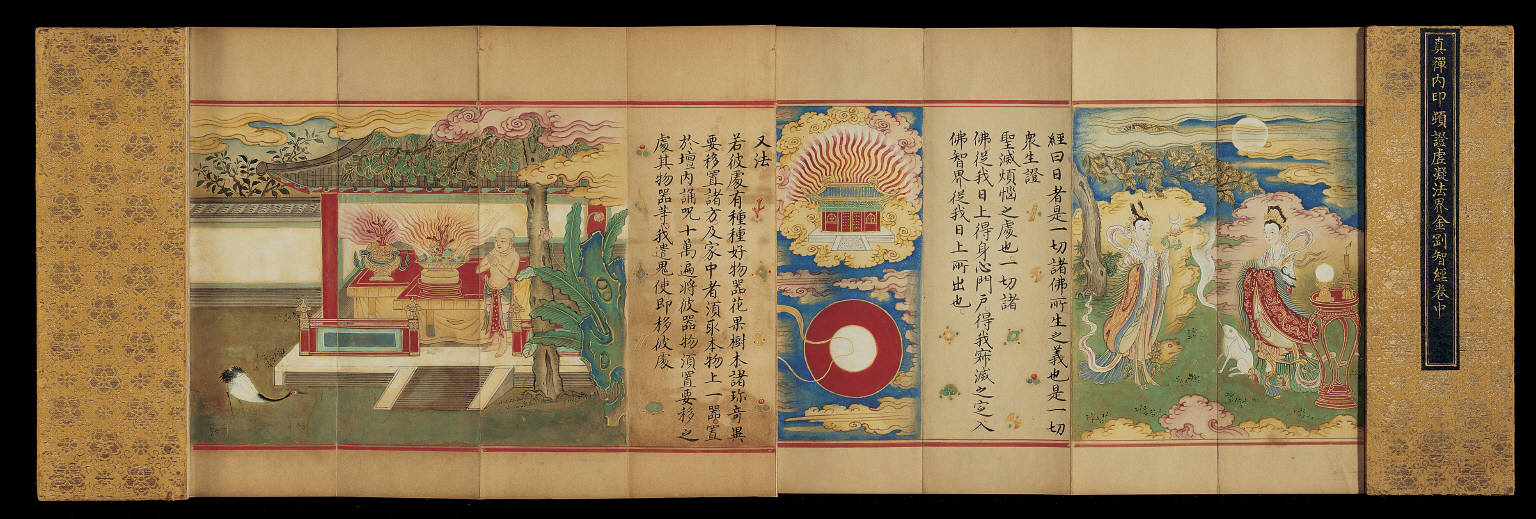 真禪內印頓證虛凝法界金剛智經卷中
經曰日者是一切諸佛所生之義也是一切
衆生證
聖滅煩惱之處也一切諸
佛從我日上得身心門戶得我寂滅之定入
佛智界從我日上所出也
又法
若彼處有種種好物器花果樹木諸珎奇異
要移置諸方及家中者須取本物上一器置
於壇內誦呪十萬遍將彼器物須置要移之
處其物器等我遣鬼使即移彼處